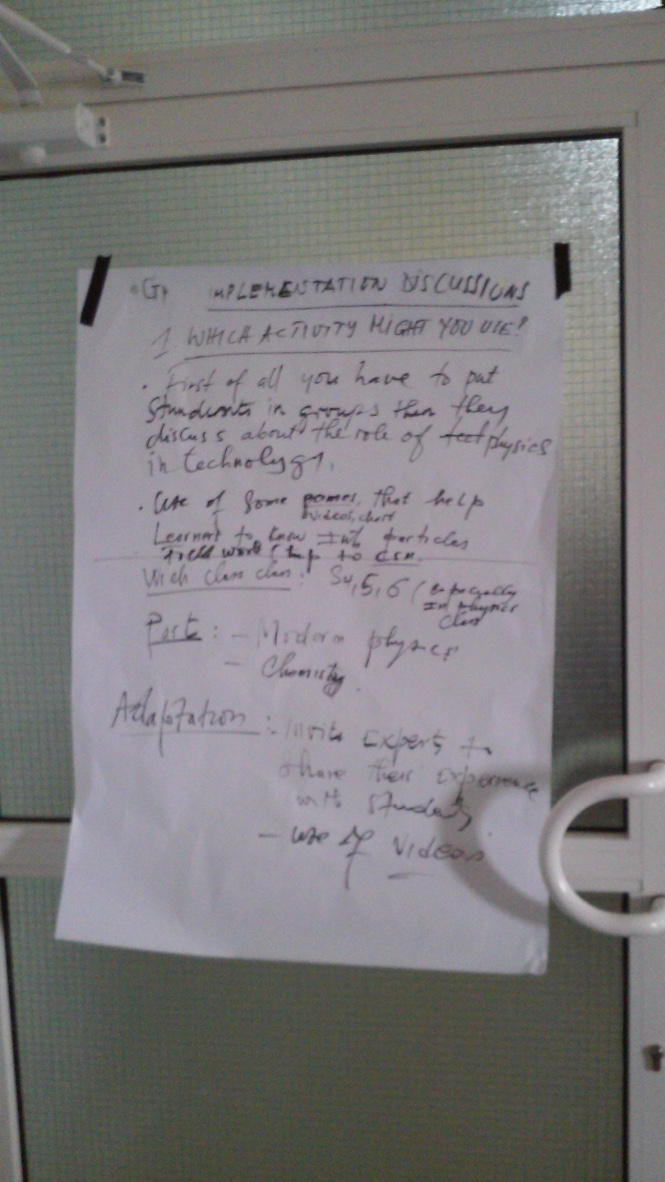 IMPLEMENTATION DISCUSSIONS
1 WHICH ACTIVITY MIGHT YOU USE?
. First of all you have to put
Students in groups then they
discuss about the role of physics
in technology.
. Use of Some games, that help
videos, chart
Learners to know particles
Field work
Which class class: S4,5,6 (especially
In physics
class
Part: - Modern physics
- Chemistry.
Adaptation: - Invite experts to
share their experience
with students
- use of videos